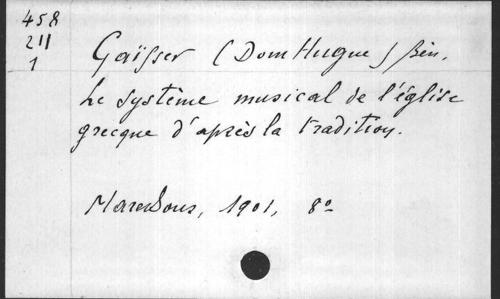 458
211
1
Gaïsser (Dom Hugue) Bén.
Le système musical de l'église
grecque d'après la tradition.
Maredsous, 1901, 8º